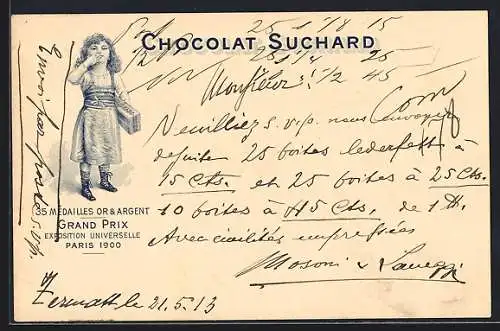 25 1/8 15
CHOCOLAT SUCHARD
25 1/4 25
Monsieur! 1/2 45
Veuilliez s. v. p. nous envoyer
de suite 25 boites lederfett à
15 Cts. et 25 boites à 25 Cts.
10 boites à 45 Cts, de 1 th.
Avec civilités empressées
Mosoni &
Envoi par poste s.v.p.
35 MEDAILLES OR & ARGENT
GRAND PRIX
EXPOSITION UNIVERSELLE
PARIS 1900
Zermatt le 21.5.13